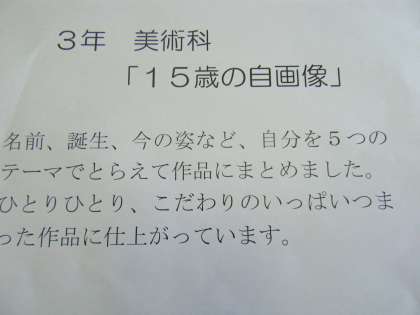 ３年　美術科
「１５歳の自画像」
名前、誕生、今の姿など、自分を５つの
テーマでとらえて作品にまとめました。
ひとりひとり、こだわりのいっぱいつま
った作品に仕上がっています。